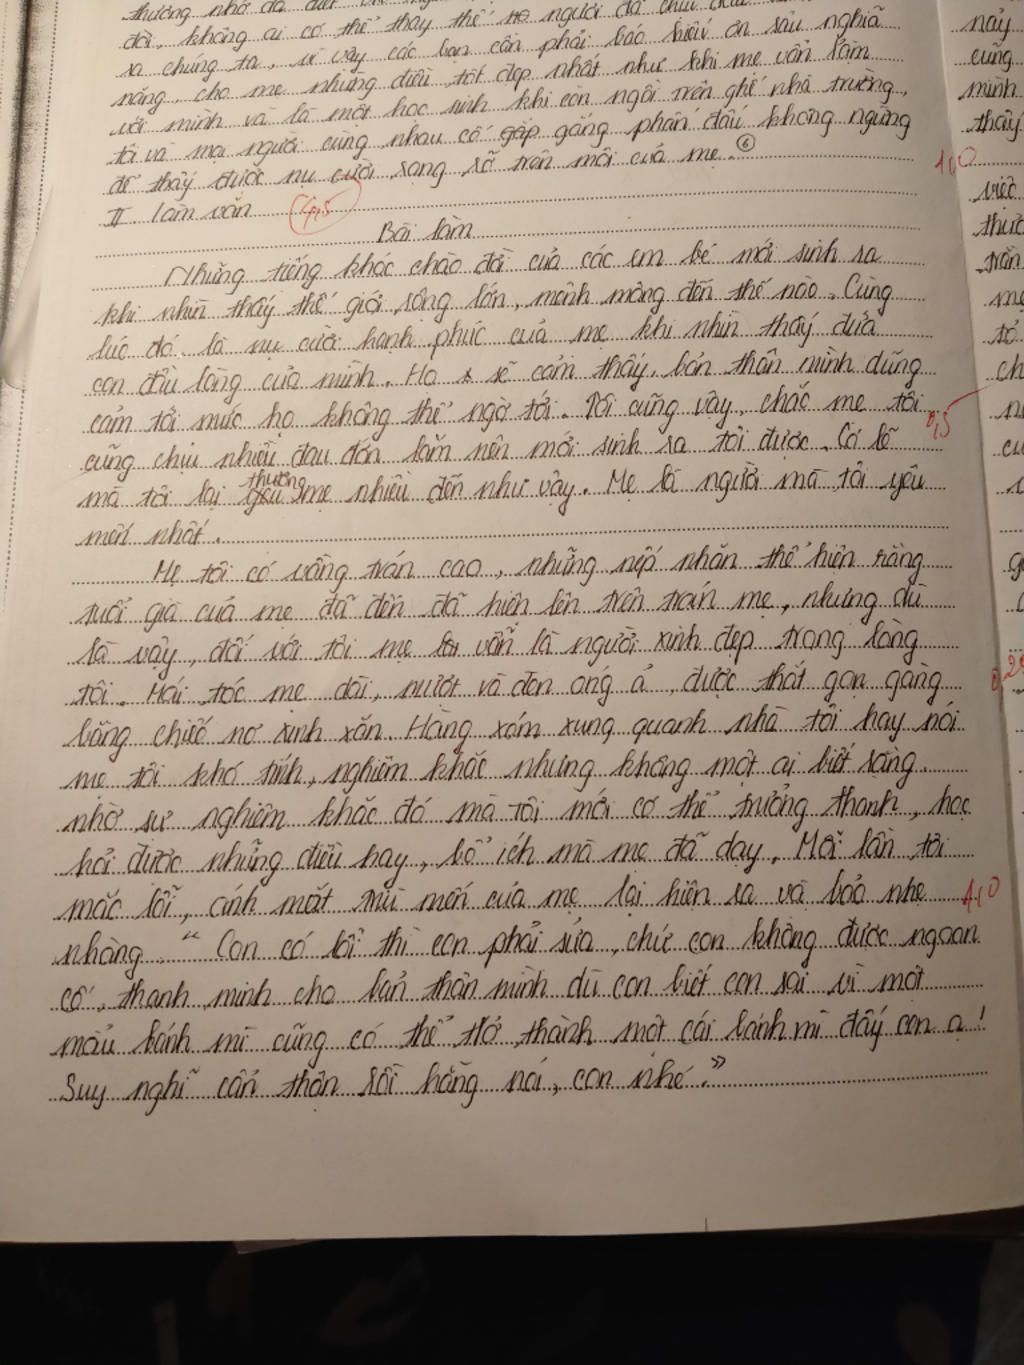 thương nhớ da diết
đời, không ai có thể thay thế. người đã chịu
ra chúng ta, vì vậy các bạn cần phải báo hiếu ơn sâu nghĩa
nặng, cho mẹ những điều tốt đẹp nhất như khi mẹ vẫn làm
với mình và là một học sinh khi còn ngồi trên ghế nhà trường,
tôi và mọi người cùng nhau cố gắng phấn đấu không ngừng
để thấy được nụ cười sạng rỡ trên môi của mẹ. 6
1,0
II. Làm văn 4,5
Bài làm
Những tiếng khóc chào đời của các em bé mới sinh ra
khi nhìn thấy thế giới rộng lớn, mênh mông đến thế nào. Cùng
lúc đó là nụ cười hạnh phúc của mẹ khi nhìn thấy đứa
con đầu lòng của mình. Họ sẽ cảm thấy bản thân mình dũng
cảm tới mức họ không thể ngờ tới. Tôi cũng vậy, chắc mẹ tôi
0,5
cũng chịu nhiều đau đớn lắm nên mới sinh ra tôi được. Có lẽ
mà tôi lại thương mẹ nhiều đến như vậy. Mẹ là người mà tôi yêu
mến nhất.
Mẹ tôi có vầng trán cao, những nếp nhăn thể hiện rằng
tuổi già của mẹ đã đến đã hiện lên trên trán mẹ, nhưng dù
là vậy, đối với tôi mẹ vẫn là người xinh đẹp trong lòng
tôi. Mái tóc mẹ dài, mượt và đen óng ả, được thắt gọn gàng
bằng chiếc nơ xinh xắn. Hàng xóm xung quanh nhà tôi hay nói
mẹ tôi khó tính, nghiêm khắc nhưng không một ai biết rằng
nhờ sự nghiêm khắc đó mà tôi mới có thể trưởng thành, học
hỏi được những điều hay, bổ ích mà mẹ đã dạy. Mỗi lần tôi
mắc lỗi, ánh mắt trìu mến của mẹ lại hiện ra và bảo nhẹ
1,0
nhàng "Con có lỗi thì con phải sửa, chứ con không được ngoan
cố, thanh minh cho bản thân mình dù con biết con sai vì một
mẩu bánh mì cũng có thể trở thành một cái bánh mì đấy con ạ!
Suy nghĩ cẩn thận rồi hẵng nói, con nhé."
này
cũng
mình
thấy
việc
thực
trân